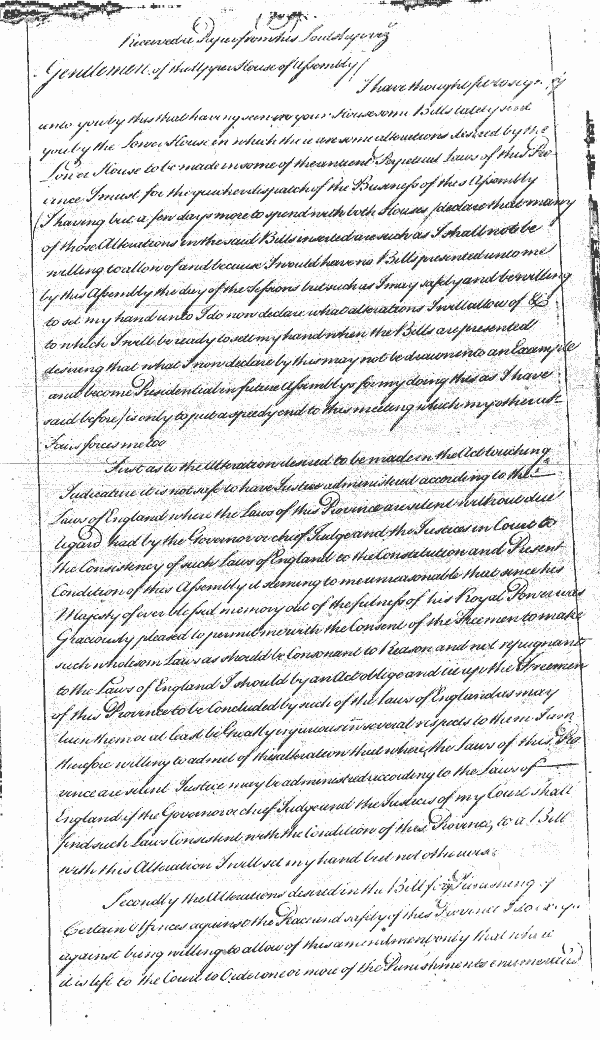 Received a Paper from his Lordship viz
Gentlemen of the Upper House of Assembly/
I have thought fit to signify
unto you by this that having seen in your House some Bills lately send
you by the Lower House in which there are some alterations desired by the
Lower House to be made in some of the antient Perpetual Laws of this Pro
vince I must for the quicker dispatch of the Business of this Assembly
(I having but a few days more to spend with both Houses/declare that many
of those Alterations in the said Bills inserted are such as I shall not be
willing to allow of and because I would have no Bills presented unto me
by this Assembly the day of the Sessions but such as I may safely and be willing
to set my hand unto I do now declare what alterations I will allow of &
to which I will be ready to sett my hand when the Bills are presented
desiring that what I now declare by this may not be drawn into an Example
and become Presidential in future Assemblys for my doing this as I have
said before/is only to put a speedy end to this meeting which my other af-
fairs forces me too
First as to the Alteration desired to be made in the Act touching
Judicature it is not safe to have Justice administred according to the
Laws of England where the Laws of this Province are silent without due
regard had by the Governor or chief Judge and the Justices in Court to
the Consistency of such Laws of England to the Constitution and Present
Condition of this Assembly it seeming to me unreasonable that since his
Majesty of ever blessed memory out of the fulness of his Royal Power was
Graciously pleased to permit me with the Consent of the Freemen to make
such wholesom Laws as should be Consonant to Reason and not repugnant
to the Laws of England I should by an Act oblige and tie up the Freemen
of this Province to be Concluded by such of the Laws of England as may
turn them or at least be Greatly injurious in several respects to them I am
therefore willing to admit of this alteration that where the Laws of this Pro
vince are silent Justice may be administred according to the Laws of
England if the Governor or chief Judge and the Justices of my Court shall
find such Laws Consistent with the Condition of this Province, to a Bill
with this Alteration I will set my hand but not otherwise
Secondly the Alterations desired in the Bill for Punishing of
Certain Offences against the Peace and safety of this Province I
against being willing to allow of this amendment only that where
it is left to the Court to Order one or more of the Punishments enumerated